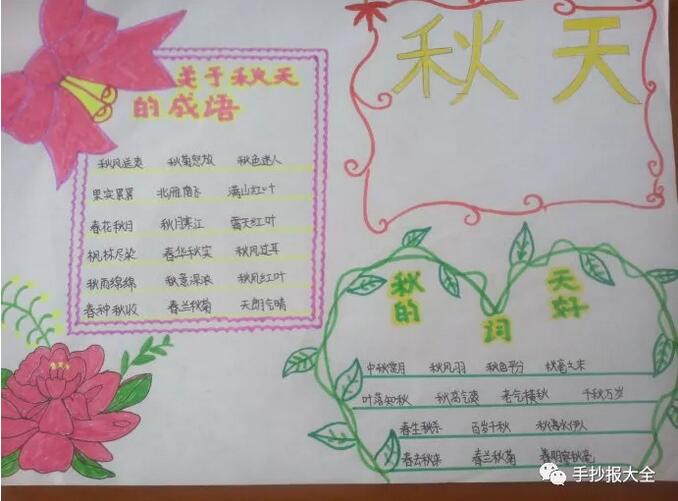 关于秋天
的成语
秋风送爽 秋菊怒放 秋色迷人
果实累累 北雁南飞 满山红叶
春花秋月 秋月寒江 霜天红叶
枫林尽染 春华秋实 秋风过耳
秋雨绵绵 秋风红叶
春种秋收 春兰秋菊 天朗气晴
秋天
秋 天
的 词 好
中秋赏月 秋色平分 秋毫之末
叶落知秋 秋高气爽 老气横秋 千秋万岁
春生秋杀 百岁千秋
春去秋来 春兰秋菊
手抄报大全